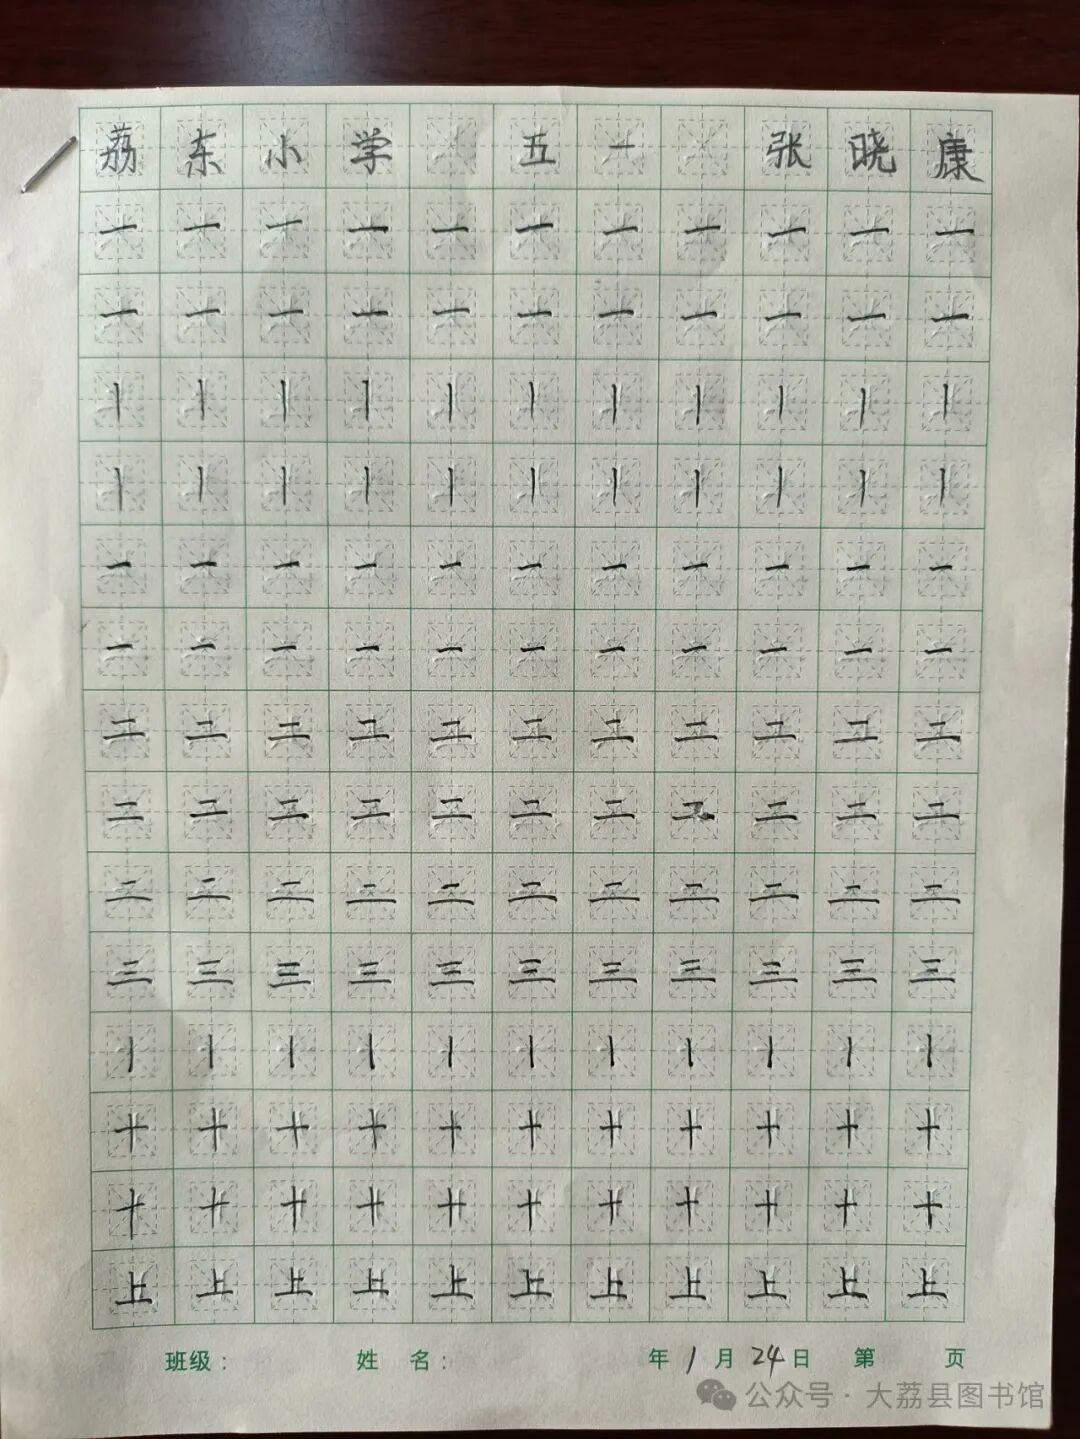 荔东小学 五一 张晓康
一一一一一一一一一一一
一一一一一一一一一一一
丨丨丨丨丨丨丨丨丨丨丨
丨丨丨丨丨丨丨丨丨丨丨
一一一一一一一一一一一
一一一一一一一一一一一
二二二二二二二二二二二
二二二二二二二二二二二
二二二二二二二二二二二
三三三三三三三三三三三
丨丨丨丨丨丨丨丨丨丨丨
十十十十十十十十十十十
十十十十十十十十十十十
上上上上上上上上上上上
班级： 姓名： 年1月24日 第 页
公众号·大荔县图书馆